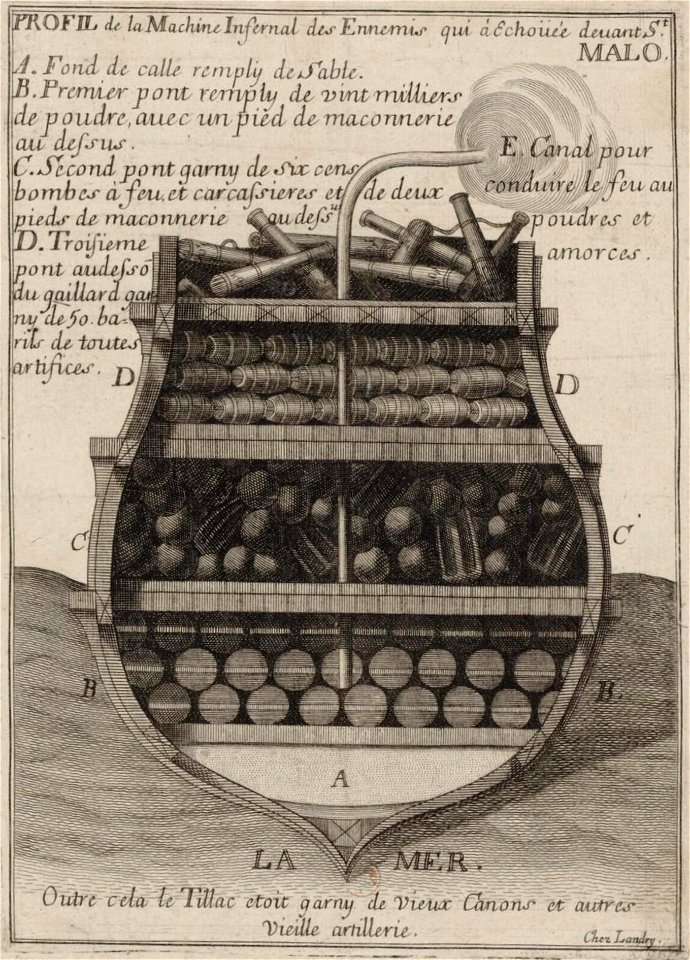 PROFIL de la Machine Infernal des Ennemis qui á Echoüée deuant S.t
MALO.
A. Fond de calle remply de Sable.
B. Premier pont remply de vint milliers
de poudre, auec un pied de maconnerie
au dessus.
C. Second pont garny de six cens
bombes à feu, et carcassieres et de deux
pieds de maconnerie au dess.us
D. Troisieme
pont audessō
du gaillard gar-
ny de 50. ba-
rils de toutes
artifices.
E. Canal pour
conduire le feu au
poudres et
amorces.
D D
C C
B B.
A
LA MER.
Outre cela le Tillac etoit garny de vieux Canons et autres
vieille artillerie.
Chez Landry.